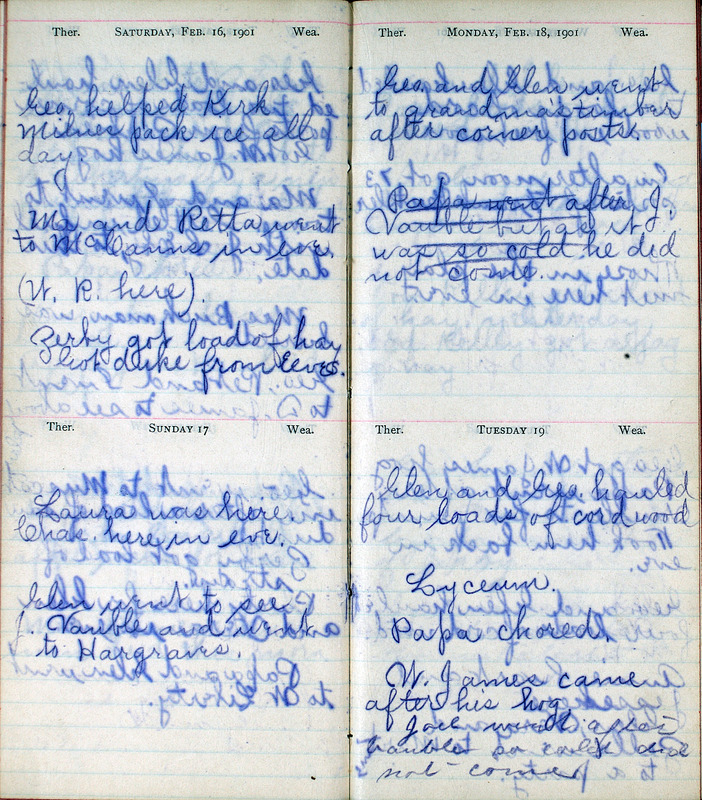 Ther. SATURDAY, FEB. 16, 1901 Wea.
Geo. helped Kirk
Milnes pack ice all
day.
Ma and Retta went
to McCanns in eve.
(W. R. here).
Zerby got load of hay
Got duke from Eeves.
Ther. SUNDAY 17 Wea.
Laura was here.
Chas. here in eve.
Glen went to see
J. Vauble and went
to Hargraves.
Ther. MONDAY, FEB. 18, 1901 Wea.
Geo. and Glen went
to grandma's timber
after corner posts.
Papa went after J.
Vauble but as it
was so cold he did
not come.
Ther. TUESDAY 19 Wea.
Glen and Geo. hauled
four loads of cord wood
Lyceum.
Papa chored.
W. James came
after his hog.
after
Vauble so cold did
not come